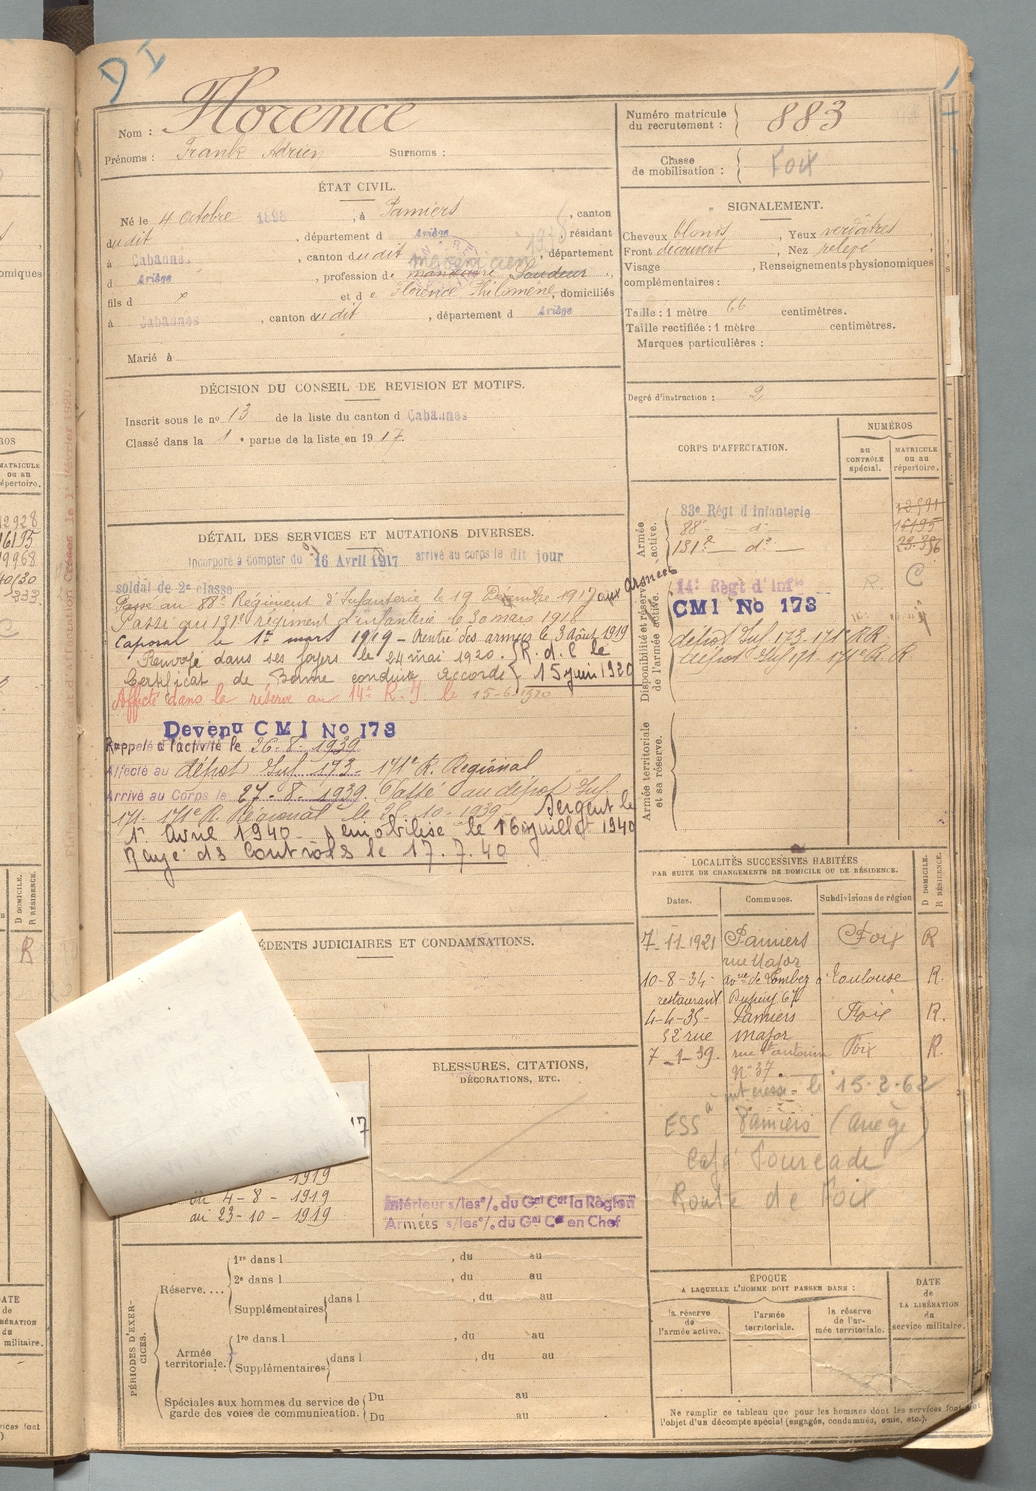 DI
Nom : Florence
Prénoms : Frank Adrien Surnoms :
ÉTAT CIVIL.
Né le 4 Octobre 1898, à Pamiers, canton
dudit, département d Ariège résidant
à Cabannes, canton dudit, département
d Ariège, profession de manoeuvre Soudeur
fils d x et de Florence Philomène, domiciliés
à Cabannes, canton dudit, département d Ariège
Marié à
DÉCISION DU CONSEIL DE REVISION ET MOTIFS.
Inscrit sous le no 13 de la liste du canton d Cabannes
Classé dans la 1e partie de la liste en 1917.
DÉTAIL DES SERVICES ET MUTATIONS DIVERSES.
Incorporé à compter du 16 Avril 1917 arrivé au corps le dit jour
soldat de 2e classe
Passé au 88e Régiment d'Infanterie le 19 Décembre 1917 aux armées
Passé au 131e régiment d'infanterie le 30 mars 1918
Caporal le 1er mars 1919 - Rentre des armées le 3 Août 1919
Renvoyé dans ses foyers le 24 mai 1920. R. d. l. le
Certificat de Bonne conduite Accordé 15 juin 1920
Affecté dans la réserve au 14e R. I. le 15-6-1920
Devenu CMI No 173
Rappelé à l'activité le 26-8-1939
Affecté au dépôt Inf. 173 - 171e R. Régional
Arrivé au Corps le 27-8-1939. Passé au dépôt Inf.
171 - 171e R. Régional le 26-10-1939. Sergent le
1er Avril 1940 - Démobilisé le 16 juillet 1940
Rayé des Contrôles le 17.7.40
ÉDENTS JUDICIAIRES ET CONDAMNATIONS.
BLESSURES, CITATIONS,
DÉCORATIONS, ETC.
17
1919
du 4-8-1919
au 23-10-1919
Intérieur s/les o/. du Gal Ct la Région
Armées s/les o/. du Gal Ct en Chef
PÉRIODES D'EXERCICES.
Réserve....
1re dans l , du au
2e dans l , du au
Supplémentaires dans l , du au
Armée territoriale.
1re dans l , du au
Supplémentaires dans l , du au
Spéciales aux hommes du service de
garde des voies de communication.
Du au
Du au
Numéro matricule
du recrutement : 883
Classe
de mobilisation : Foix
SIGNALEMENT.
Cheveux blonds, Yeux verdâtres,
Front découvert, Nez relevé,
Visage , Renseignements physionomiques
complémentaires :
Taille : 1 mètre 66 centimètres.
Taille rectifiée : 1 mètre centimètres.
Marques particulières :
Degré d'instruction : 2
CORPS D'AFFECTATION.
NUMÉROS
AU CONTRÔLE spécial.
MATRICULE ou au répertoire.
Armée active.
83e Régt d'Infanterie
88e do
131e do
Disponibilité et réserve de l'armée active.
14e Régt d'Infie
CMI No 173
dépôt Inf 173 - 171e RR
dépôt Inf 171 - 171e R.R
Armée territoriale et sa réserve.
LOCALITÉS SUCCESSIVES HABITÉES
PAR SUITE DE CHANGEMENTS DE DOMICILE OU DE RÉSIDENCE.
Dates. Communes. Subdivisions de région
D DOMICILE.
R RÉSIDENCE.
7-11-1921 Pamiers Foix R
rue Major
10-8-34 - ave de Lombez à Toulouse R.
restaurant Dupuy
4-4-35- Pamiers Foix R.
52 rue Major
7-1-39. rue Foix R.
No 37
le 15-2-62
ESS à Pamiers (Ariège)
Café Fourcade
Route de Foix
ÉPOQUE
A LAQUELLE L'HOMME DOIT PASSER DANS :
la réserve de l'armée active.
l'armée territoriale.
la réserve de l'armée territoriale.
DATE
de
LA LIBÉRATION
du
service militaire.
Ne remplir ce tableau que pour les hommes dont les services font
l'objet d'un décompte spécial (engagés, condamnés, omis, etc.).